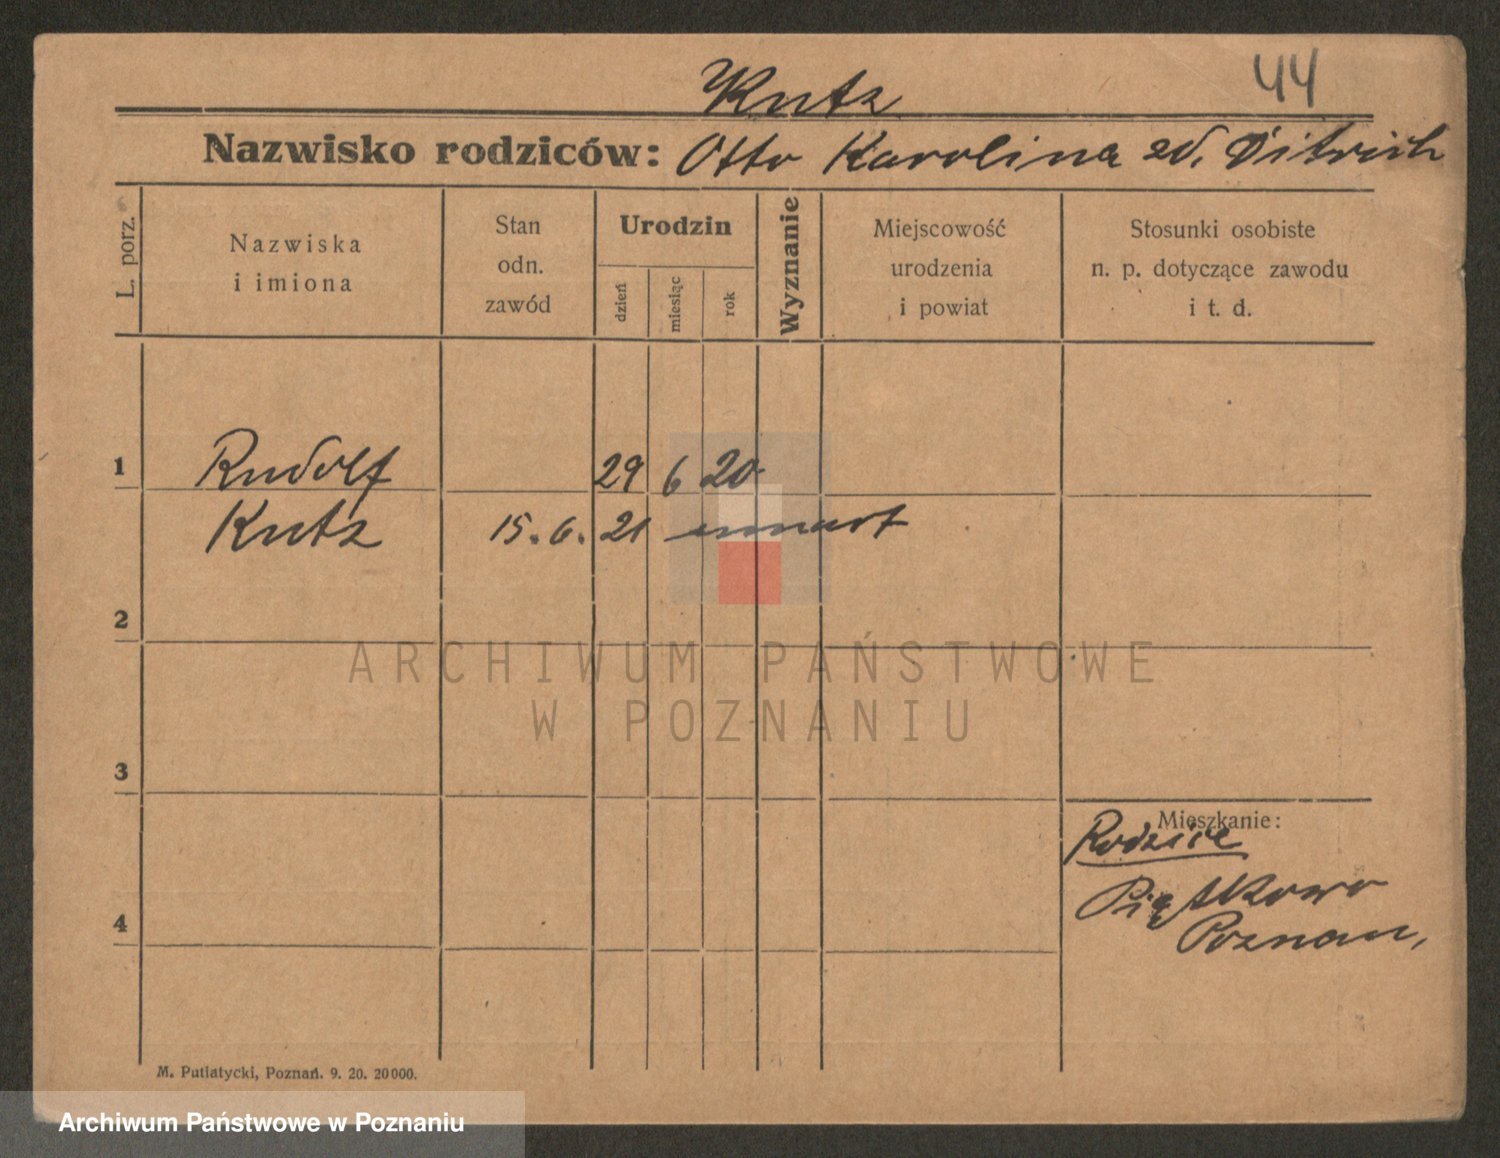 44
Kutz
Nazwisko rodziców: Otto Karolina zd. Ditrich
L. porz.
Nazwiska
i imiona
Stan
odn.
zawód
Urodzin
dzień
miesiąc
rok
Wyznanie
Miejscowość
urodzenia
i powiat
Stosunki osobiste
n. p. dotyczące zawodu
i t. d.
1 Rudolf 29 6 20
Kutz 15. 6. 21 umarł
2
ARCHIWUM PAŃSTWOWE
W POZNANIU
3
Mieszkanie:
Rodzice
Piątkowo
Poznań,
4
M. Putiatycki, Poznań. 9. 20. 20000.
Archiwum Państwowe w Poznaniu